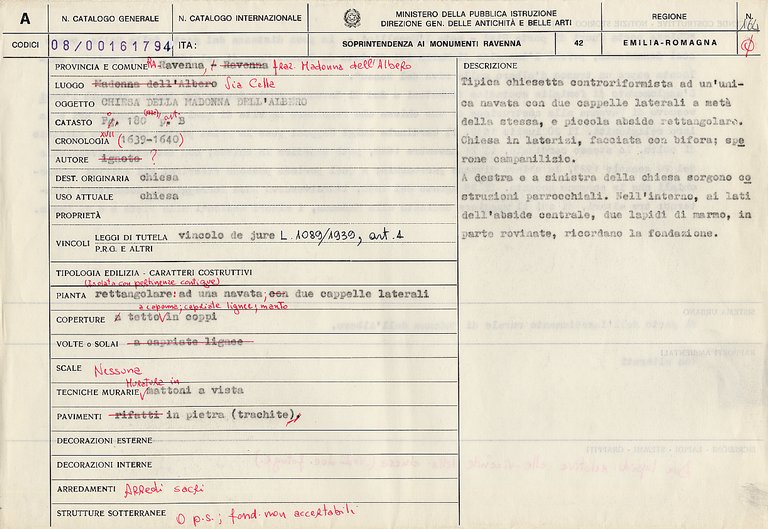 A
N. CATALOGO GENERALE
N. CATALOGO INTERNAZIONALE
MINISTERO DELLA PUBBLICA ISTRUZIONE
DIREZIONE GEN. DELLE ANTICHITÀ E BELLE ARTI
REGIONE
N.
CODICI
08/00161794
ITA:
SOPRINTENDENZA AI MONUMENTI RAVENNA
42
EMILIA-ROMAGNA
PROVINCIA E COMUNE RA Ravenna, - Ravenna fraz. Madonna dell'Albero
LUOGO Madonna dell'Albero Via Cella
OGGETTO CHIESA DELLA MADONNA DELL'ALBERO
CATASTO 180 B
CRONOLOGIA XVII (1639-1640)
AUTORE ignoto ?
DEST. ORIGINARIA chiesa
USO ATTUALE chiesa
PROPRIETÀ
VINCOLI
LEGGI DI TUTELA vincolo de jure L. 1089/1939, art. 1
P.R.G. E ALTRI
TIPOLOGIA EDILIZIA - CARATTERI COSTRUTTIVI
(Isolata con pertinenze contigue)
PIANTA rettangolare: ad una navata; con due cappelle laterali
a capanna; capriate lignee; manto
COPERTURE a tetto in coppi
VOLTE o SOLAI a capriate lignee
SCALE Nessuna
Muratura in
TECNICHE MURARIE mattoni a vista
PAVIMENTI rifatti in pietra (trachite)
DECORAZIONI ESTERNE
DECORAZIONI INTERNE
ARREDAMENTI Arredi sacri
STRUTTURE SOTTERRANEE O p.s.; fond. non accertabili
DESCRIZIONE
Tipica chiesetta controriformista ad un'uni-
ca navata con due cappelle laterali a metà
della stessa, e piccola abside rettangolare.
Chiesa in laterizi, facciata con bifora; spe
rone campanilizio.
A destra e a sinistra della chiesa sorgono co
struzioni parrocchiali. Nell'interno, ai lati
dell'abside centrale, due lapidi di marmo, in
parte rovinate, ricordano la fondazione.